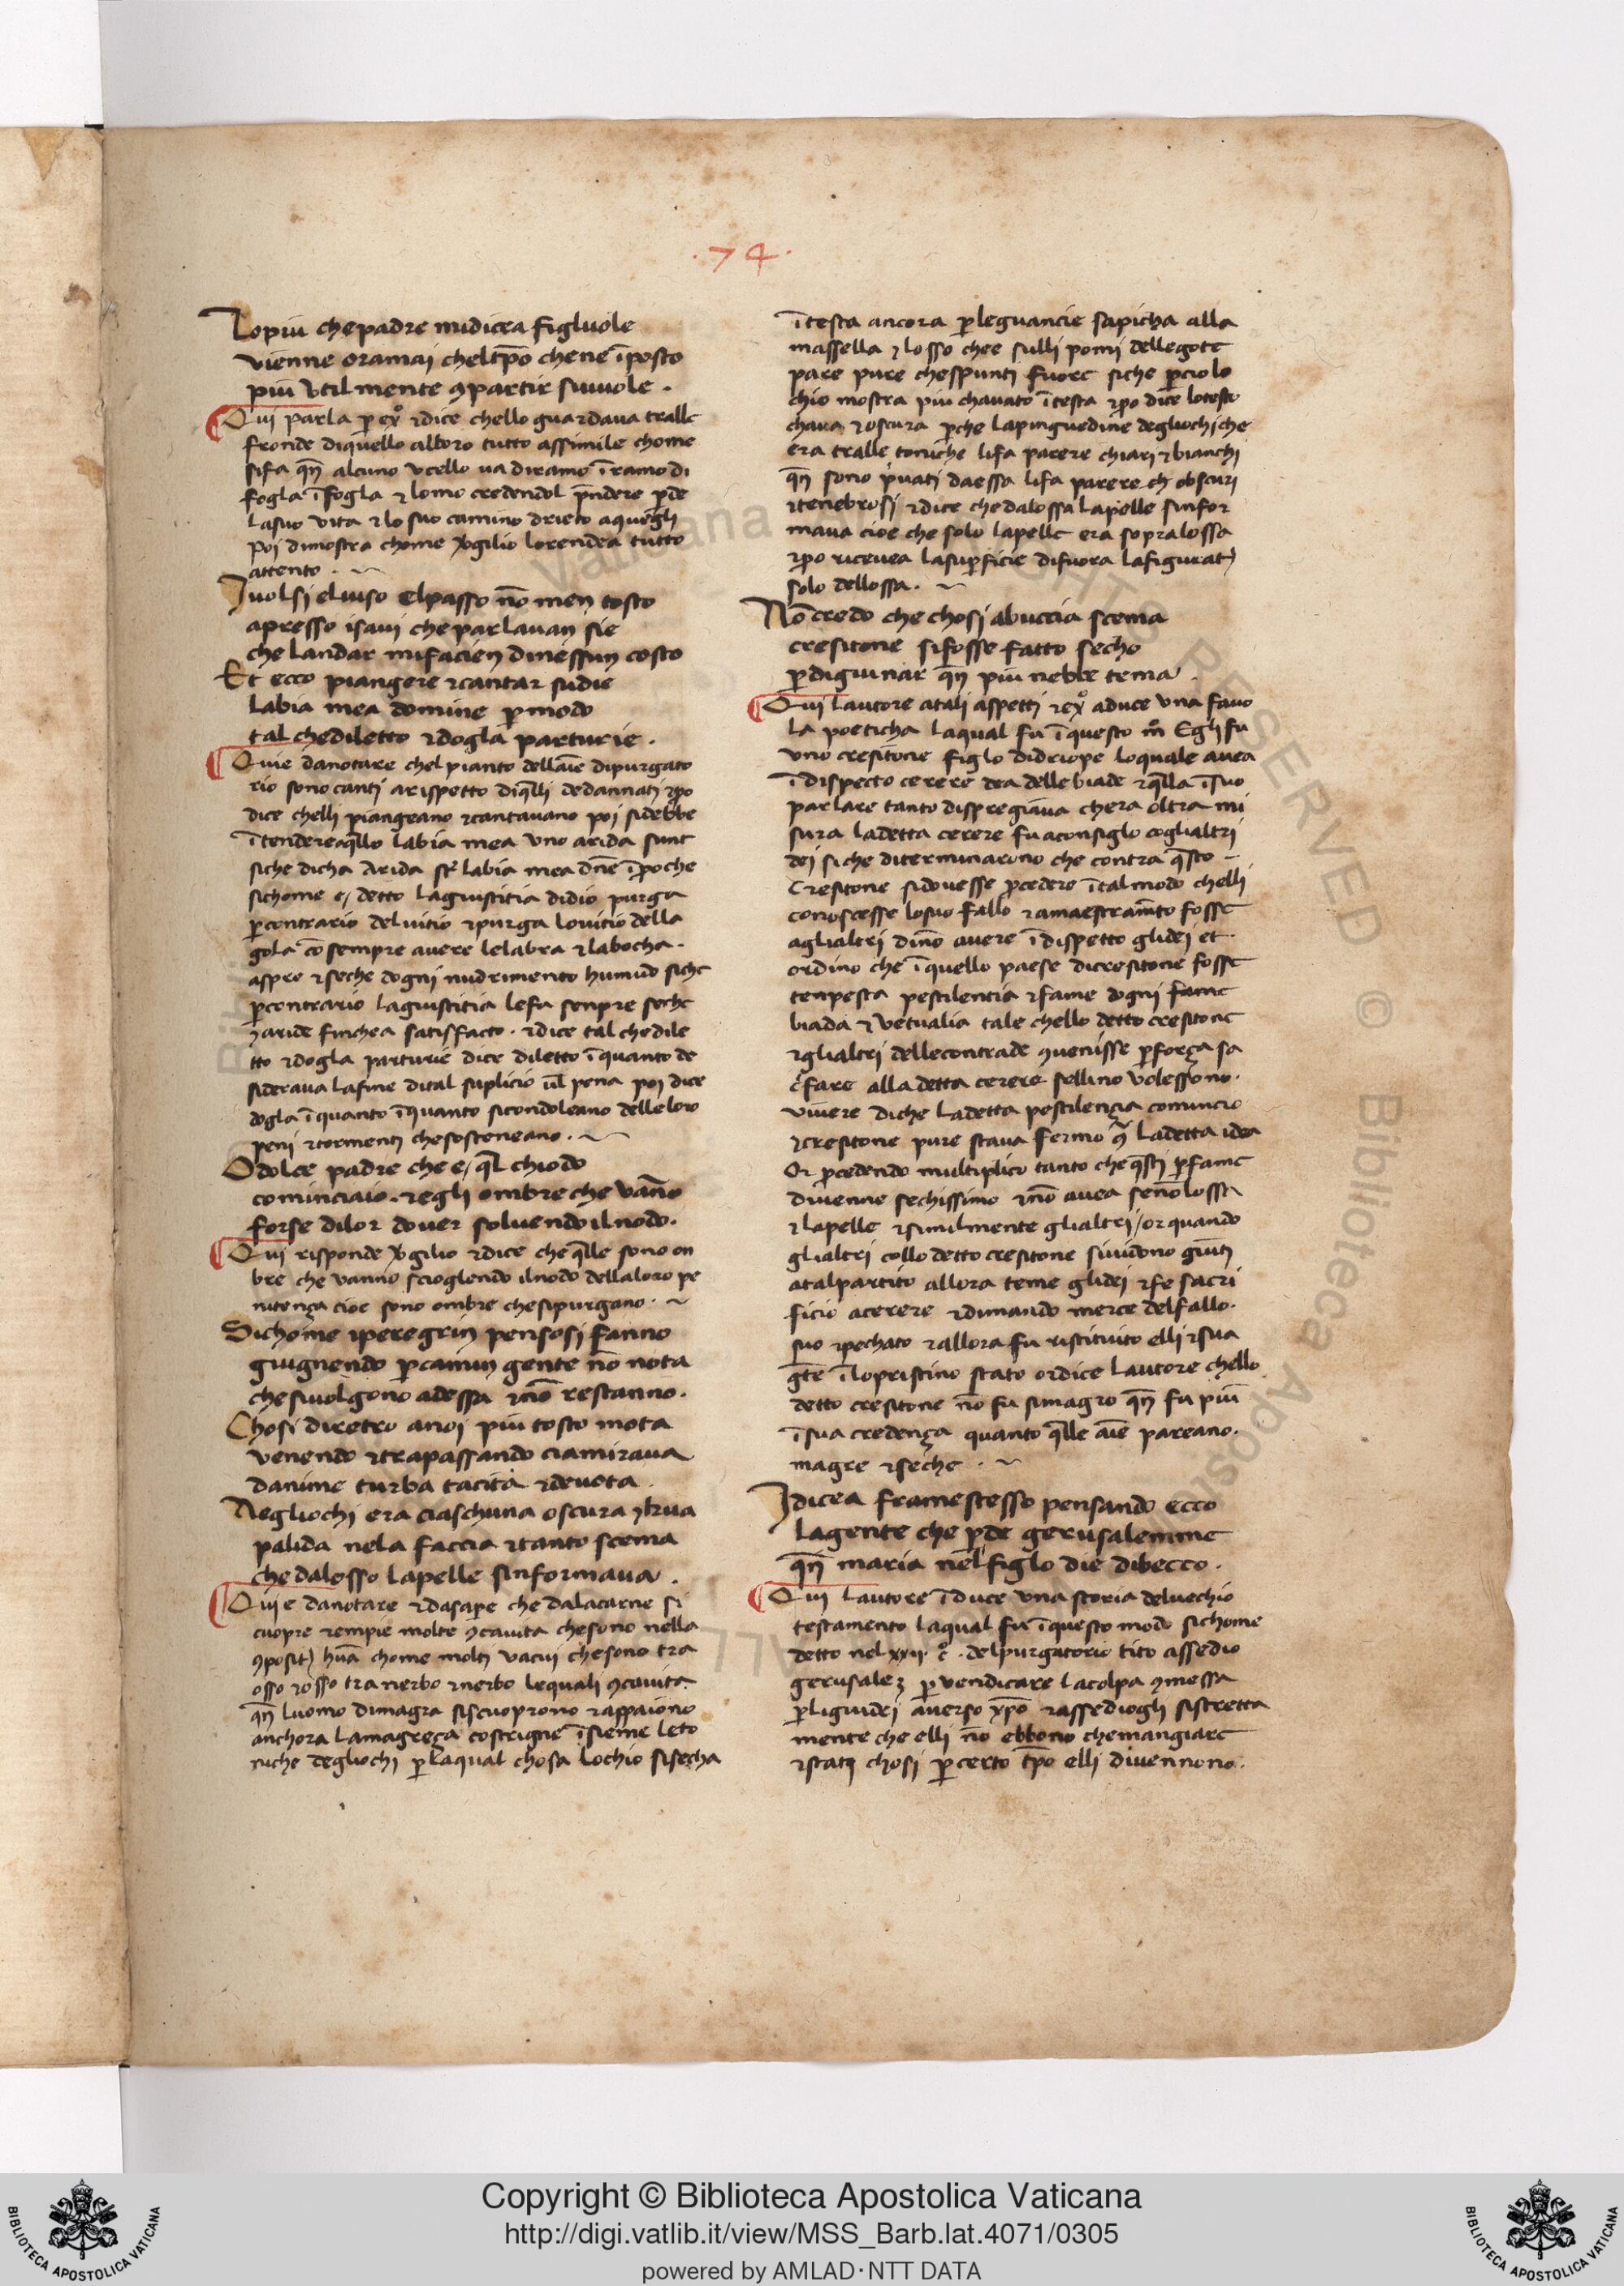 .74.
Lopiu chepadre midicea figluole
vienne oramai cheltp̄o chene īposto
piu vtilmente ꝯpartir siuuole .
Qui parla ꝑ exº ⁊dice chello guardaua tralle
fronde diquello alboro tutto assimile chome
sifa qn̄ alcuno vcello ua diramo īramo di
fogla īfogla ⁊ lomo credendol p̄ndere ꝑde
lasuo vita ⁊ lo suo camino drieto aquegli
poi dimostra chome v̄gilio lorendea tutto
attento .
Iuolsi eluiso elpasso nō men tosto
apresso isaui cheparlauan sie
che landar mifacien dinessun costo
Et ecco piangere ⁊cantar sudie
labia mea domine ꝑmodo
tal chediletto ⁊dogla parturie .
Quie danotare chel pianto dellaīe dipurgato
rio sono canti arispetto diq̄lli dedannati ⁊ꝑo
dice chelli piangeano ⁊cantauano poi sidebbe
ītendereaq̄llo labia mea uno arida sunt
siche dicha Arida st̄ labia mea dn̄e īꝑoche
sichome e/ detto lagiustitia didio purga
ꝑcontrario deluitio ⁊purga louitio della
gola cō sempre auere lelabra ⁊labocha .
aspre ⁊seche dogni nudrimento humido siche
ꝑcontrario lagiustitia lefa senpre seche
⁊aride finchea satisfacto . ⁊dice tal chedile
tto ⁊dogla parturie dice diletto īquanto de
sideraua lafine dital suplicio ul̄ pena poi dice
dogla īquanto īquanto sicondoleano delleloro
peni ⁊tormenti chesosteneano .
O dolce padre che e/ q̄l chiodo
cominciaio . ⁊egli ombre che vāno
forse dilor douer soluendo ilnodo .
Qui risponde v̄gilio ⁊dice che q̄lle sono on
bre che vanno scioglendo ilnodo dellaloro pe
nitença cioe sono ombre chesipurgano .
Sichome iperegrin pensosi fanno
giugnendo ꝑcamin gente nō nota
chesiuolgono adessa ⁊nō restanno .
Chosi diretro anoi piu tosto mota
venendo ⁊trapassando ciamiraua
danime turba tacita ⁊deuota .
Negliochi era ciaschuna oscura ⁊brua
palida nela faccia ⁊tanto scema
che dalosso lapelle sinformaua .
Quie danotare ⁊dasape che dalacarne si
cuopre ⁊empie molte ꝯcauita chesono nella
ꝯposit) huā chome molti vacui chesono tra
osso ⁊osso tra nerbo ⁊nerbo lequali ꝯcauita
qn̄ luomo dimagra siscuoprono ⁊appaiono
anchora lamagreça costrigne īsieme leto
niche degliochi ꝑ laqual chosa lochio sisecha
ītesta ancora ꝑleguancie sapicha alla
massella ⁊ losso chee sulli pomi dellegote
pare pure chespunti fuore siche ꝑciolo
chio mostra piu chauato ītesta ⁊ꝑo dice lotesto
chaua ⁊oscura ꝑche lapinguedine degliochi che
era tralle toniche lifa parere chiari ⁊bianchi
qn̄ sono p̄uati daessa lifa parere ch̄ obscuri
⁊tenebrosi ⁊dice chedalossa lapelle sinfor
maua cioe che solo lapelle era sopralossa
⁊ꝑo riceuea lasuꝑficie difuora lafigurat)
solo dellossa .
Nōcredo che chosi abuccia scema
cresitone sifosse fatto secho
ꝑdigiunar qn̄ piu nebbe tema .
Qui lautore atali aspetti ⁊exº aduce una fauo
la poeticha laqual fu īquesto mº Egli fu
uno cresitone figlo didriope loquale auea
īdispecto cerere dea delle biade ⁊q̄lla īsuo
parlare tanto dispregiaua chera oltra mi
sura ladetta cerere fu aconsiglo coglialtri
dei siche diterminarono che contra q̄sto
Cresitone sidouesse ꝓcedere ītalmodo chelli
conoscesse losuo fallo ⁊amaestram̄to fosse
aglialtri dinō auere īdispetto glidei et
ordino che īquello paese dicresitone fosse
tenpesta pestilentia ⁊fame dogni fame
biada ⁊vetualia tale chello detto cresitone
⁊glialtri dellecontrade ꝯuenisse ꝑforça sa
c̄fare alladetta cerere sellino volessono .
viuere diche ladetta pestilença comincio
⁊cresitone pure staua fermo ꝯͣ ladetta idea
Or ꝓcedendo multiplico tanto che q̄sti ꝑfame
diuenne sechissimo ⁊nō auea senōlossa
⁊lapelle ⁊similmente glialtri/ or quando
glialtri collo detto cresitone siuidono giūti
atalpartito allora teme glidei ⁊fe sacri
ficio acerere ⁊dimando merce delfallo .
suo ⁊pechato ⁊allora fu ristituito elli ⁊sua
gt̄e īlopristino stato ordice lautore chello
detto cresitone nō fu simagro qn̄ fu piu
īsua credença quanto q̄lle aīe pareano .
magre ⁊seche .
Idicea framestesso pensando ecco
lagente che ꝑde gerusalemme
qn̄ maria nel figlo die dibecco .
Qui lautore īduce una storia deluechio
testamento laqual fu īquesto modo sichome
detto nel xxij . cº . delpurgatorio tito assedio
gerusaleꝫ ꝑ vendicare lacolpa ꝯmessa
ꝑligiudei auerso xp̄o ⁊assediogli sistretta
mente che elli nō ebbono chemangiare
⁊stati chosi ꝑcerto tp̄o elli diuennono .
Copyright © Biblioteca Apostolica Vaticana
http://digi.vatlib.it/view/MSS_Barb.lat.4071/0305
powered by AMLAD·NTT DATA
BIBLIOTECA APOSTOLICA VATICANA
BIBLIOTECA APOSTOLICA VATICANA